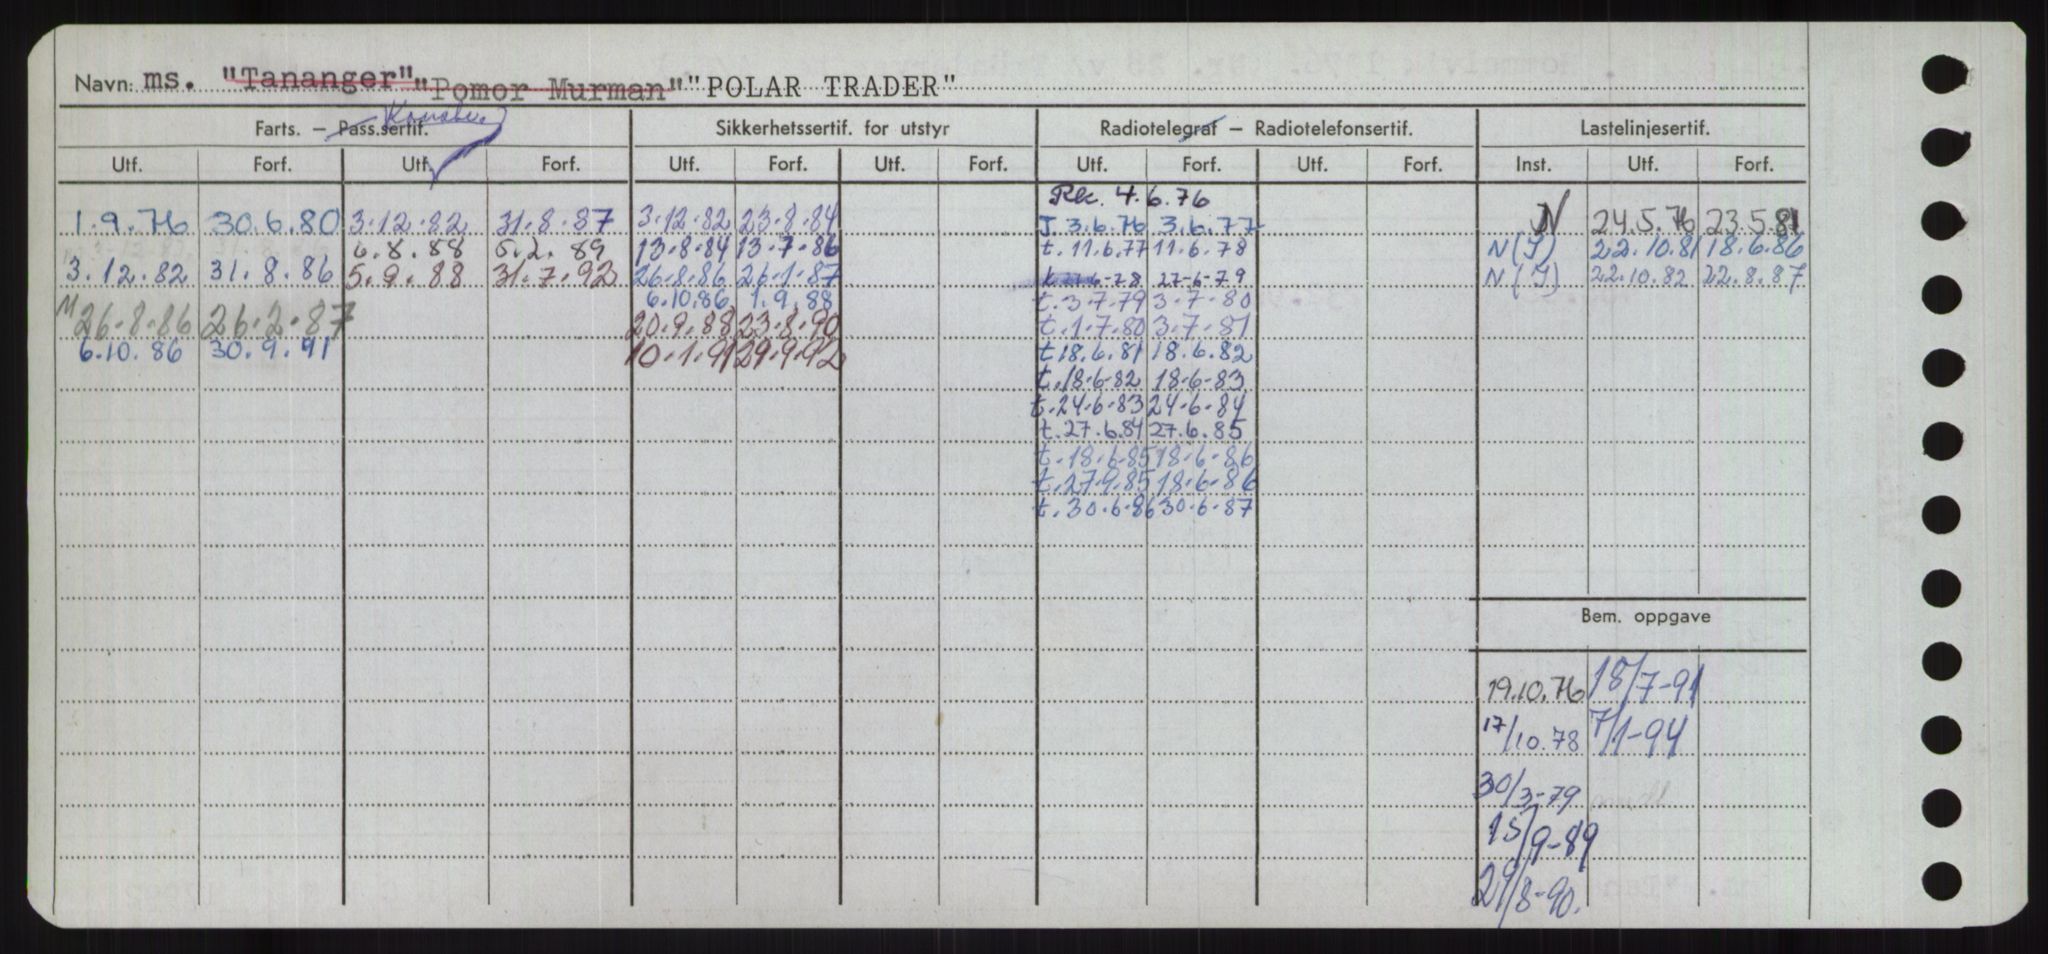 Navn: ms. "Tananger" "Pomor Murman" "POLAR TRADER"
Farts. — Pass.sertif. Sikkerhetssertif. for utstyr Radiotelegraf — Radiotelefonsertif. Lastelinjesertif.
Utf. Forf. Utf. Forf. Utf. Forf. Utf. Forf. Utf. Forf. Utf. Forf. Inst. Utf. Forf.
Rk. 4.6.76
1.9.76 30.6.80 3.12.82 31.8.87 3.12.82 23.8.84 J. 3.6.76 3.6.77 N 24.5.76 23.5.81
6.8.88 5.2.89 13.8.84 13.7.86 t. 11.6.77 11.6.78 N(J) 22.10.81 18.6.86
3.12.82 31.8.86 5.9.88 31.7.92 26.8.86 26.1.87 6-78 27-6-79 N(J) 22.10.82 22.8.87
6.10.86 1.9.88 t. 3.7.79 3.7.80
M 26.8.86 26.2.87 20.9.88 23.8.90 t. 1.7.80 3.7.81
6.10.86 30.9.91 10.1.91 29.9.92 t. 18.6.81 18.6.82
t. 18.6.82 18.6.83
t. 24.6.83 24.6.84
t. 27.6.84 27.6.85
t. 18.6.85 18.6.86
t. 27.9.85 18.6.86
t. 30.6.86 30.6.87
Bem. oppgave
19.10.76 18/7-91
17/10.78 7/1-94
30/3-79
15/9-89
29/8-90.